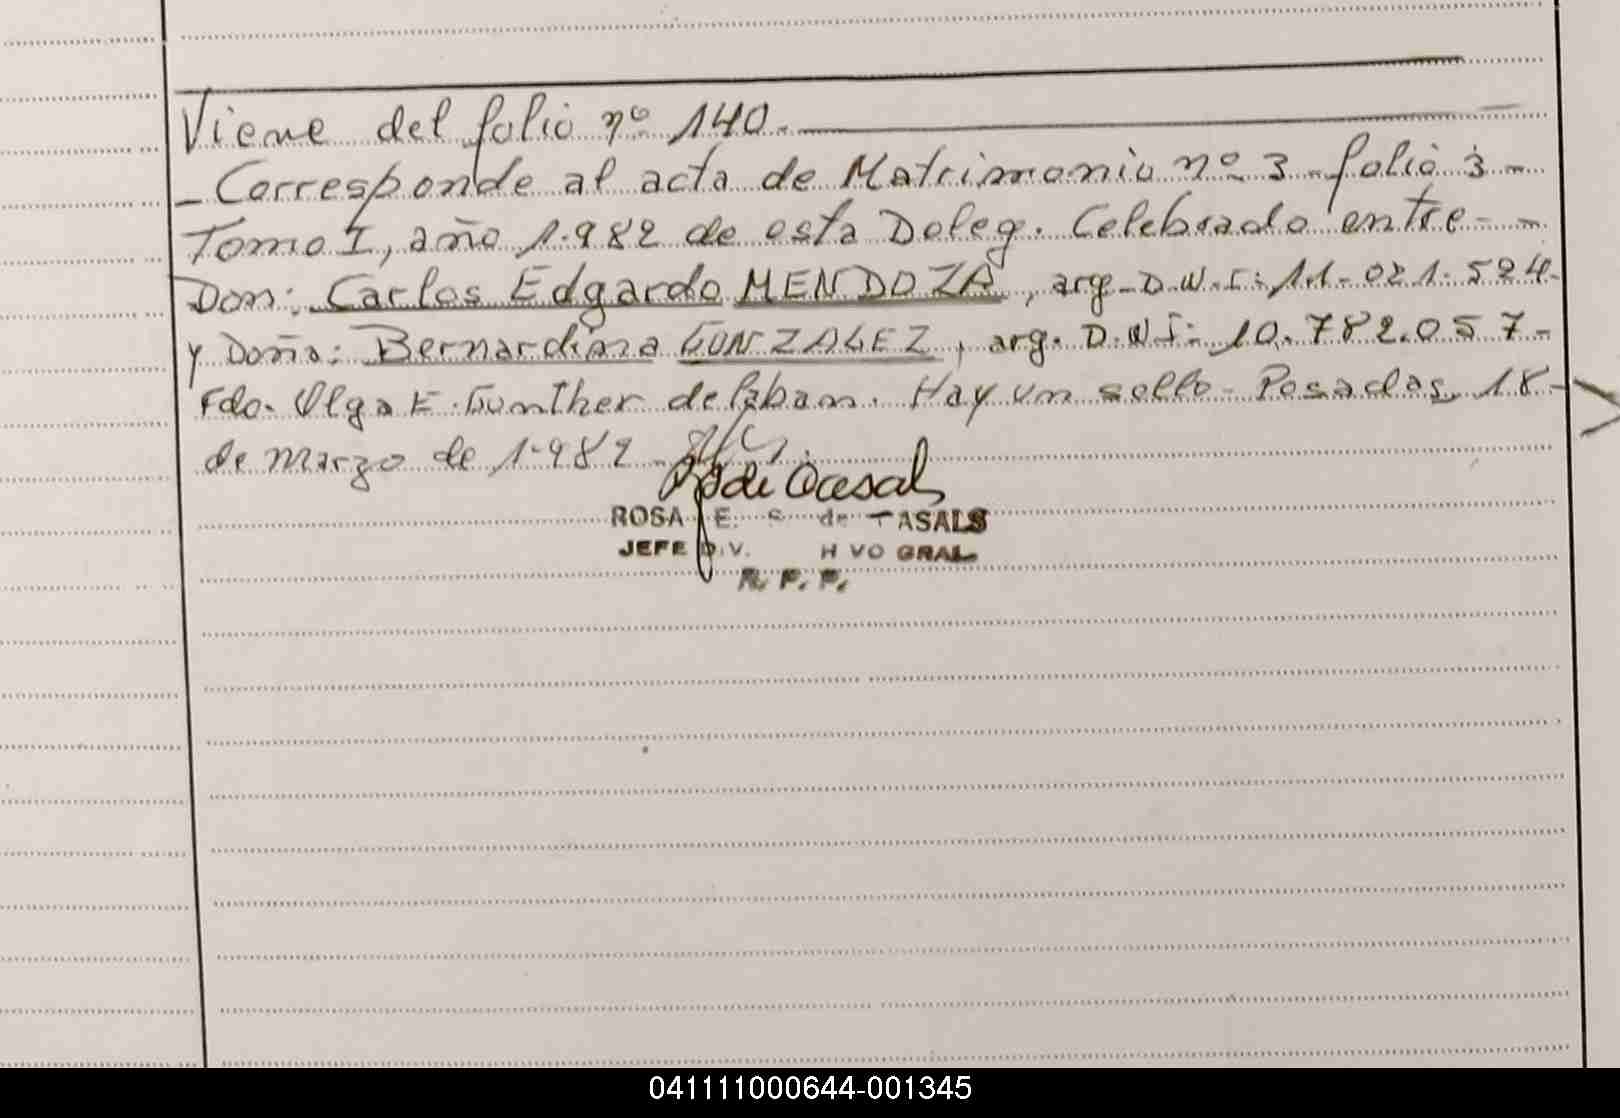 Viene del folio nº 140.
- Corresponde al acta de Matrimonio nº 3 folio 3 -
Tomo I, año 1.982 de esta Deleg. Celebrado entre - -
Don: Carlos Edgardo MENDOZA, arg. D.N.I: 11.021.524-
y Doña: Bernardina GONZALEZ, arg. D.N.I: 10.782.057-
Fdo. Olga E. Gunther de . Hay un sello - Posadas, 18-
de Marzo de 1.982
de Casals
ROSA E. S. de CASALS
JEFE D.V. H VO GRAL
R. P. P.
041111000644-001345